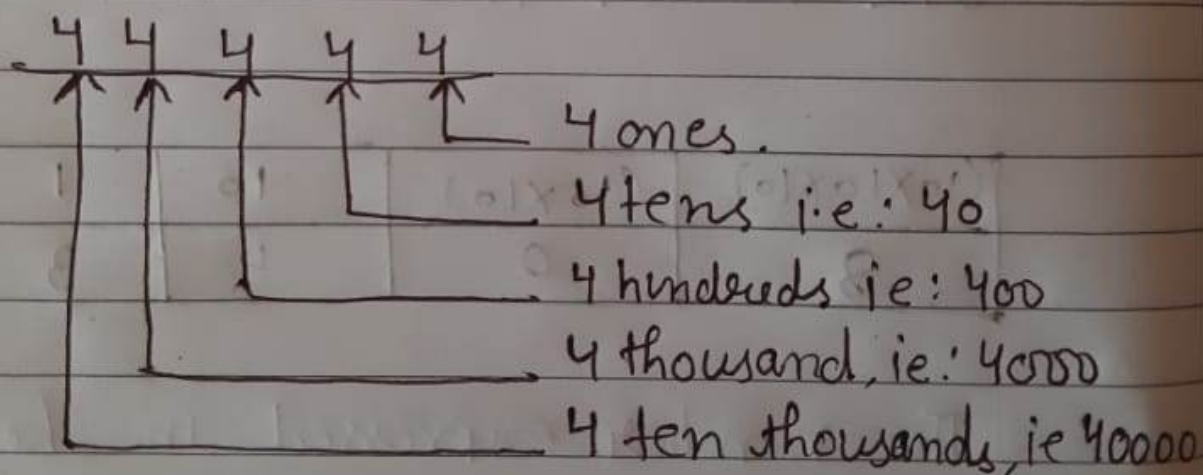 4 4 4 4 4
4 ones.
4 tens i.e: 40
4 hundreds ie: 400
4 thousand, ie: 4000
4 ten thousands, ie 40000